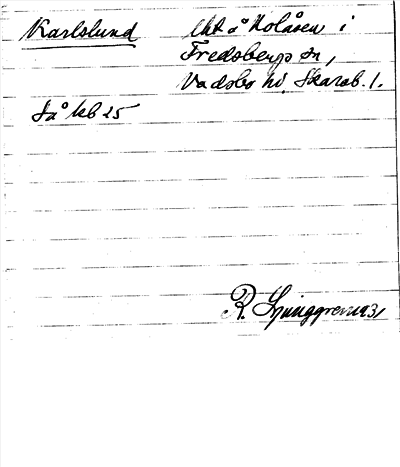 Karlslund
lht å Holåsen i
Fredsbergs sn,
Vadsbo hd. Skarab. l.
Så kb 25
R. Ljunggren 1931